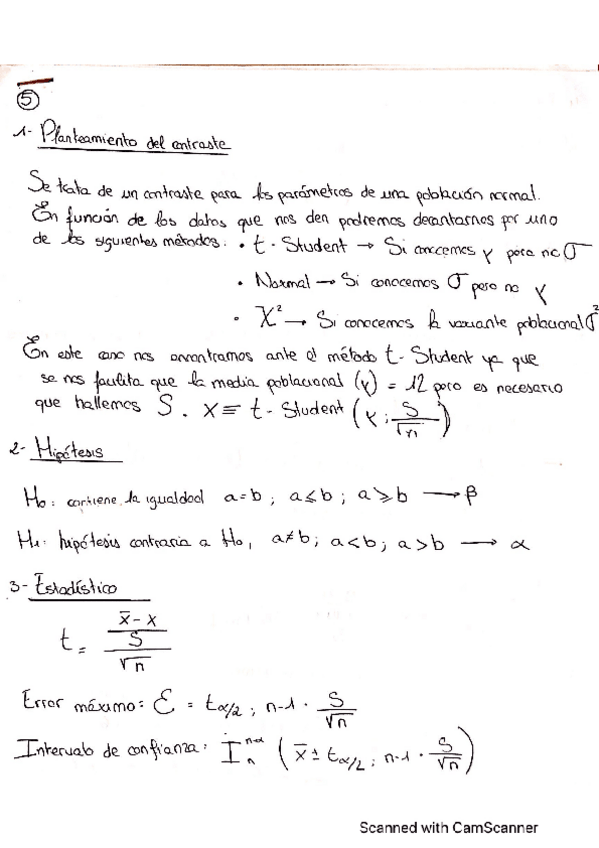 5
1- Planteamiento del contraste
Se trata de un contraste para los parámetros de una población normal.
En función de los datos que nos den podremos decantarnos por uno
de los siguientes métodos: • t-Student → Si conocemos γ pero no σ
• Normal → Si conocemos σ pero no γ
• X² → Si conocemos la variante poblacional σ²
En este caso nos encontramos ante el método t-Student ya que
se nos facilita que la media poblacional (γ) = 12 pero es necesario
que hallemos S. X ≡ t-Student (γ ; S/√n)
2- Hipótesis
H₀: contiene la igualdad a=b ; a≤b ; a≥b → β
H₁: hipótesis contraria a H₀, a≠b ; a<b ; a>b → α
3- Estadístico
t = (x̄ - x) / (S/√n)
Error máximo: ε = t α/2 ; n-1 · S/√n
Intervalo de confianza: I (x̄ ± t α/2 ; n-1 · S/√n)
Scanned with CamScanner